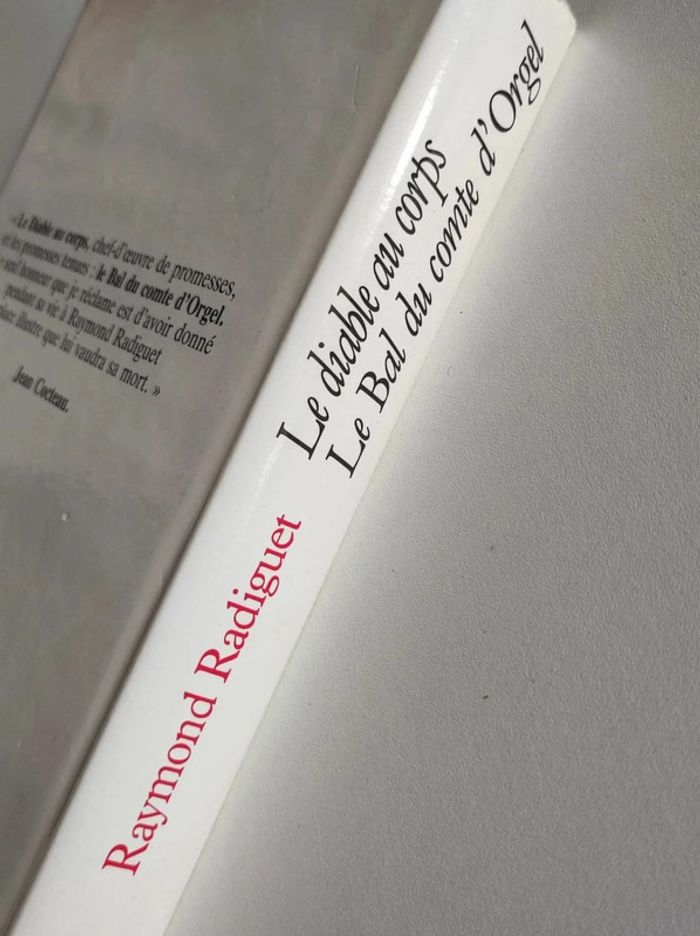 « Le Diable au corps, chef-d'œuvre de promesses,
et les promesses tenues : le Bal du comte d'Orgel.
seul honneur que je réclame est d'avoir donné
pendant sa vie à Raymond Radiguet
place illustre que lui vaudra sa mort. »
Jean Cocteau.
Raymond Radiguet
Le diable au corps
Le Bal du comte d'Orgel